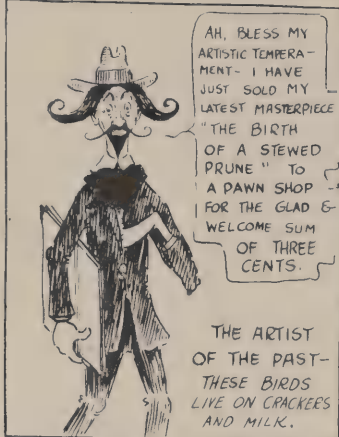 AH, BLESS MY
ARTISTIC TEMPERA-
MENT- I HAVE
JUST SOLD MY
LATEST MASTERPIECE
"THE BIRTH
OF A STEWED
PRUNE" TO
A PAWN SHOP -
FOR THE GLAD &
WELCOME SUM
OF THREE
CENTS.
THE ARTIST
OF THE PAST-
THESE BIRDS
LIVE ON CRACKERS
AND MILK.